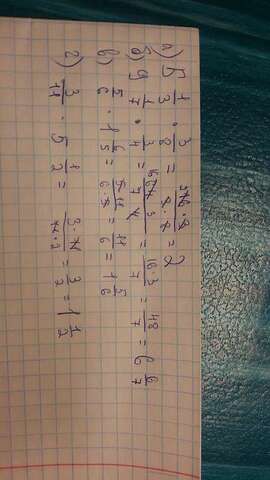 а) 5 1/3 · 3/8 = 16·3/3·8 = 2
б) 9 1/7 · 3/4 = 64·3/7·4 = 16·3/7 = 48/7 = 6 6/7
в) 5/6 · 1 6/5 = 5·11/6·5 = 11/6 = 1 5/6
г) 3/11 · 5 1/2 = 3·11/11·2 = 3/2 = 1 1/2